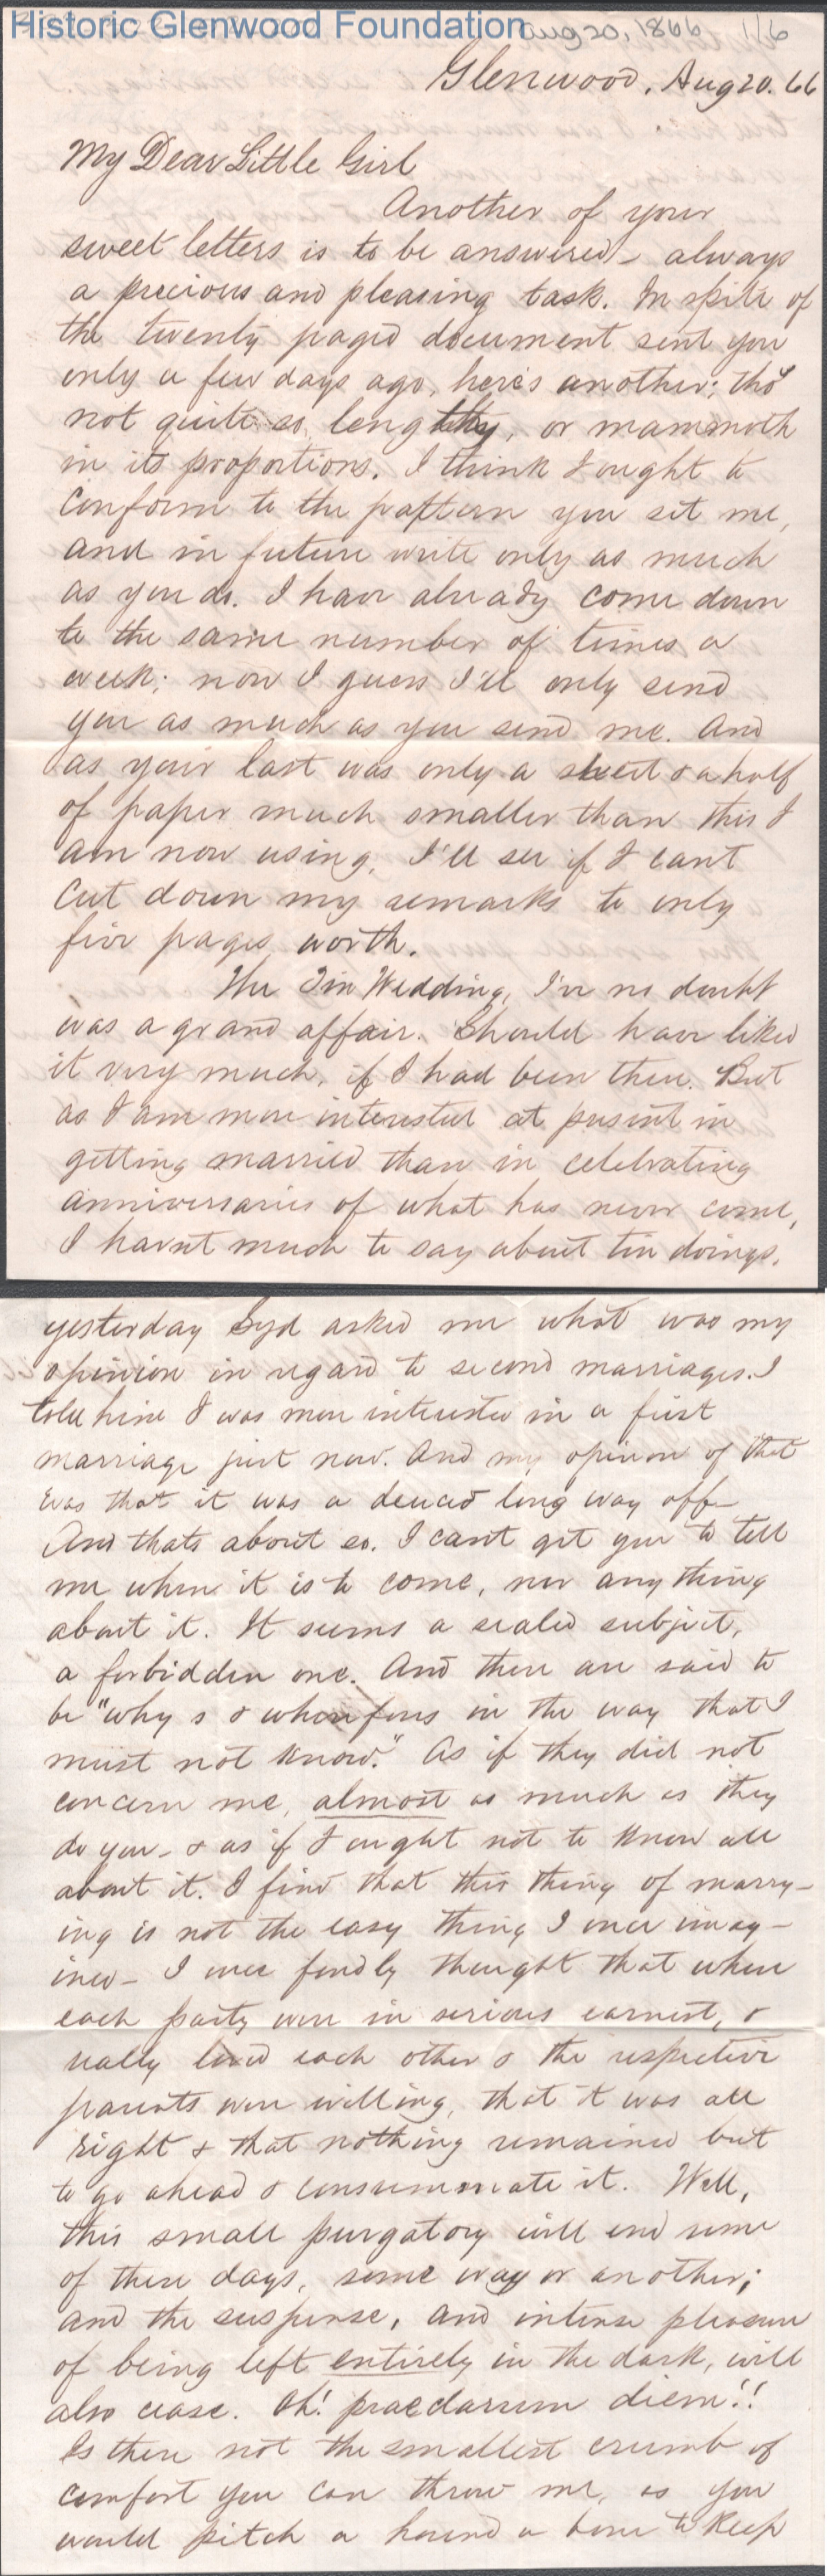 Historic Glenwood Foundation
Aug 20, 1866 1/6
Glenwood, Aug 20. 66
My Dear Little Girl
Another of your
sweet letters is to be answered – always
a precious and pleasing task. In spite of
the twenty paged document sent you
only a few days ago, here's another; tho'
not quite so lengthy, or mammoth
in its proportions. I think I ought to
conform to the pattern you set me,
and in future write only as much
as you do. I have already come down
to the same number of times a
week; now I guess I'll only send
you as much as you send me. And
as your last was only a sheet & a half
of paper much smaller than this I
am now using, I'll see if I cant
cut down my remarks to only
five pages worth.
The Tin Wedding, I've no doubt
was a grand affair. Should have liked
it very much, if I had been there. But
as I am more interested at present in
getting married than in celebrating
anniversaries of what has never come,
I havnt much to say about tin doings.
yesterday Syd asked me what was my
opinion in regard to second marriages. I
told him I was more interested in a first
marriage just now. And my opinion of that
was that it was a deuced long way off –
And thats about so. I cant get you to tell
me when it is to come, nor any thing
about it. It seems a sealed subject,
a forbidden one. And there are said to
be "why s & wherefores in the way that I
must not know." As if they did not
concern me, almost as much as they
do you – & as if I ought not to know all
about it. I find that this thing of marry-
ing is not the easy thing I once imag-
ined – I once fondly thought that when
each party were in serious earnest, &
really loved each other & the respective
parents were willing, that it was all
right & that nothing remained but
to go ahead & consummate it. Well,
this small purgatory will end some
of these days, some way or another;
and the suspense, and intense pleasure
of being left entirely in the dark, will
also cease. Oh! praeclarum diem!!
Is there not the smallest crumb of
comfort you can throw me, as you
would pitch a hound a bone to keep